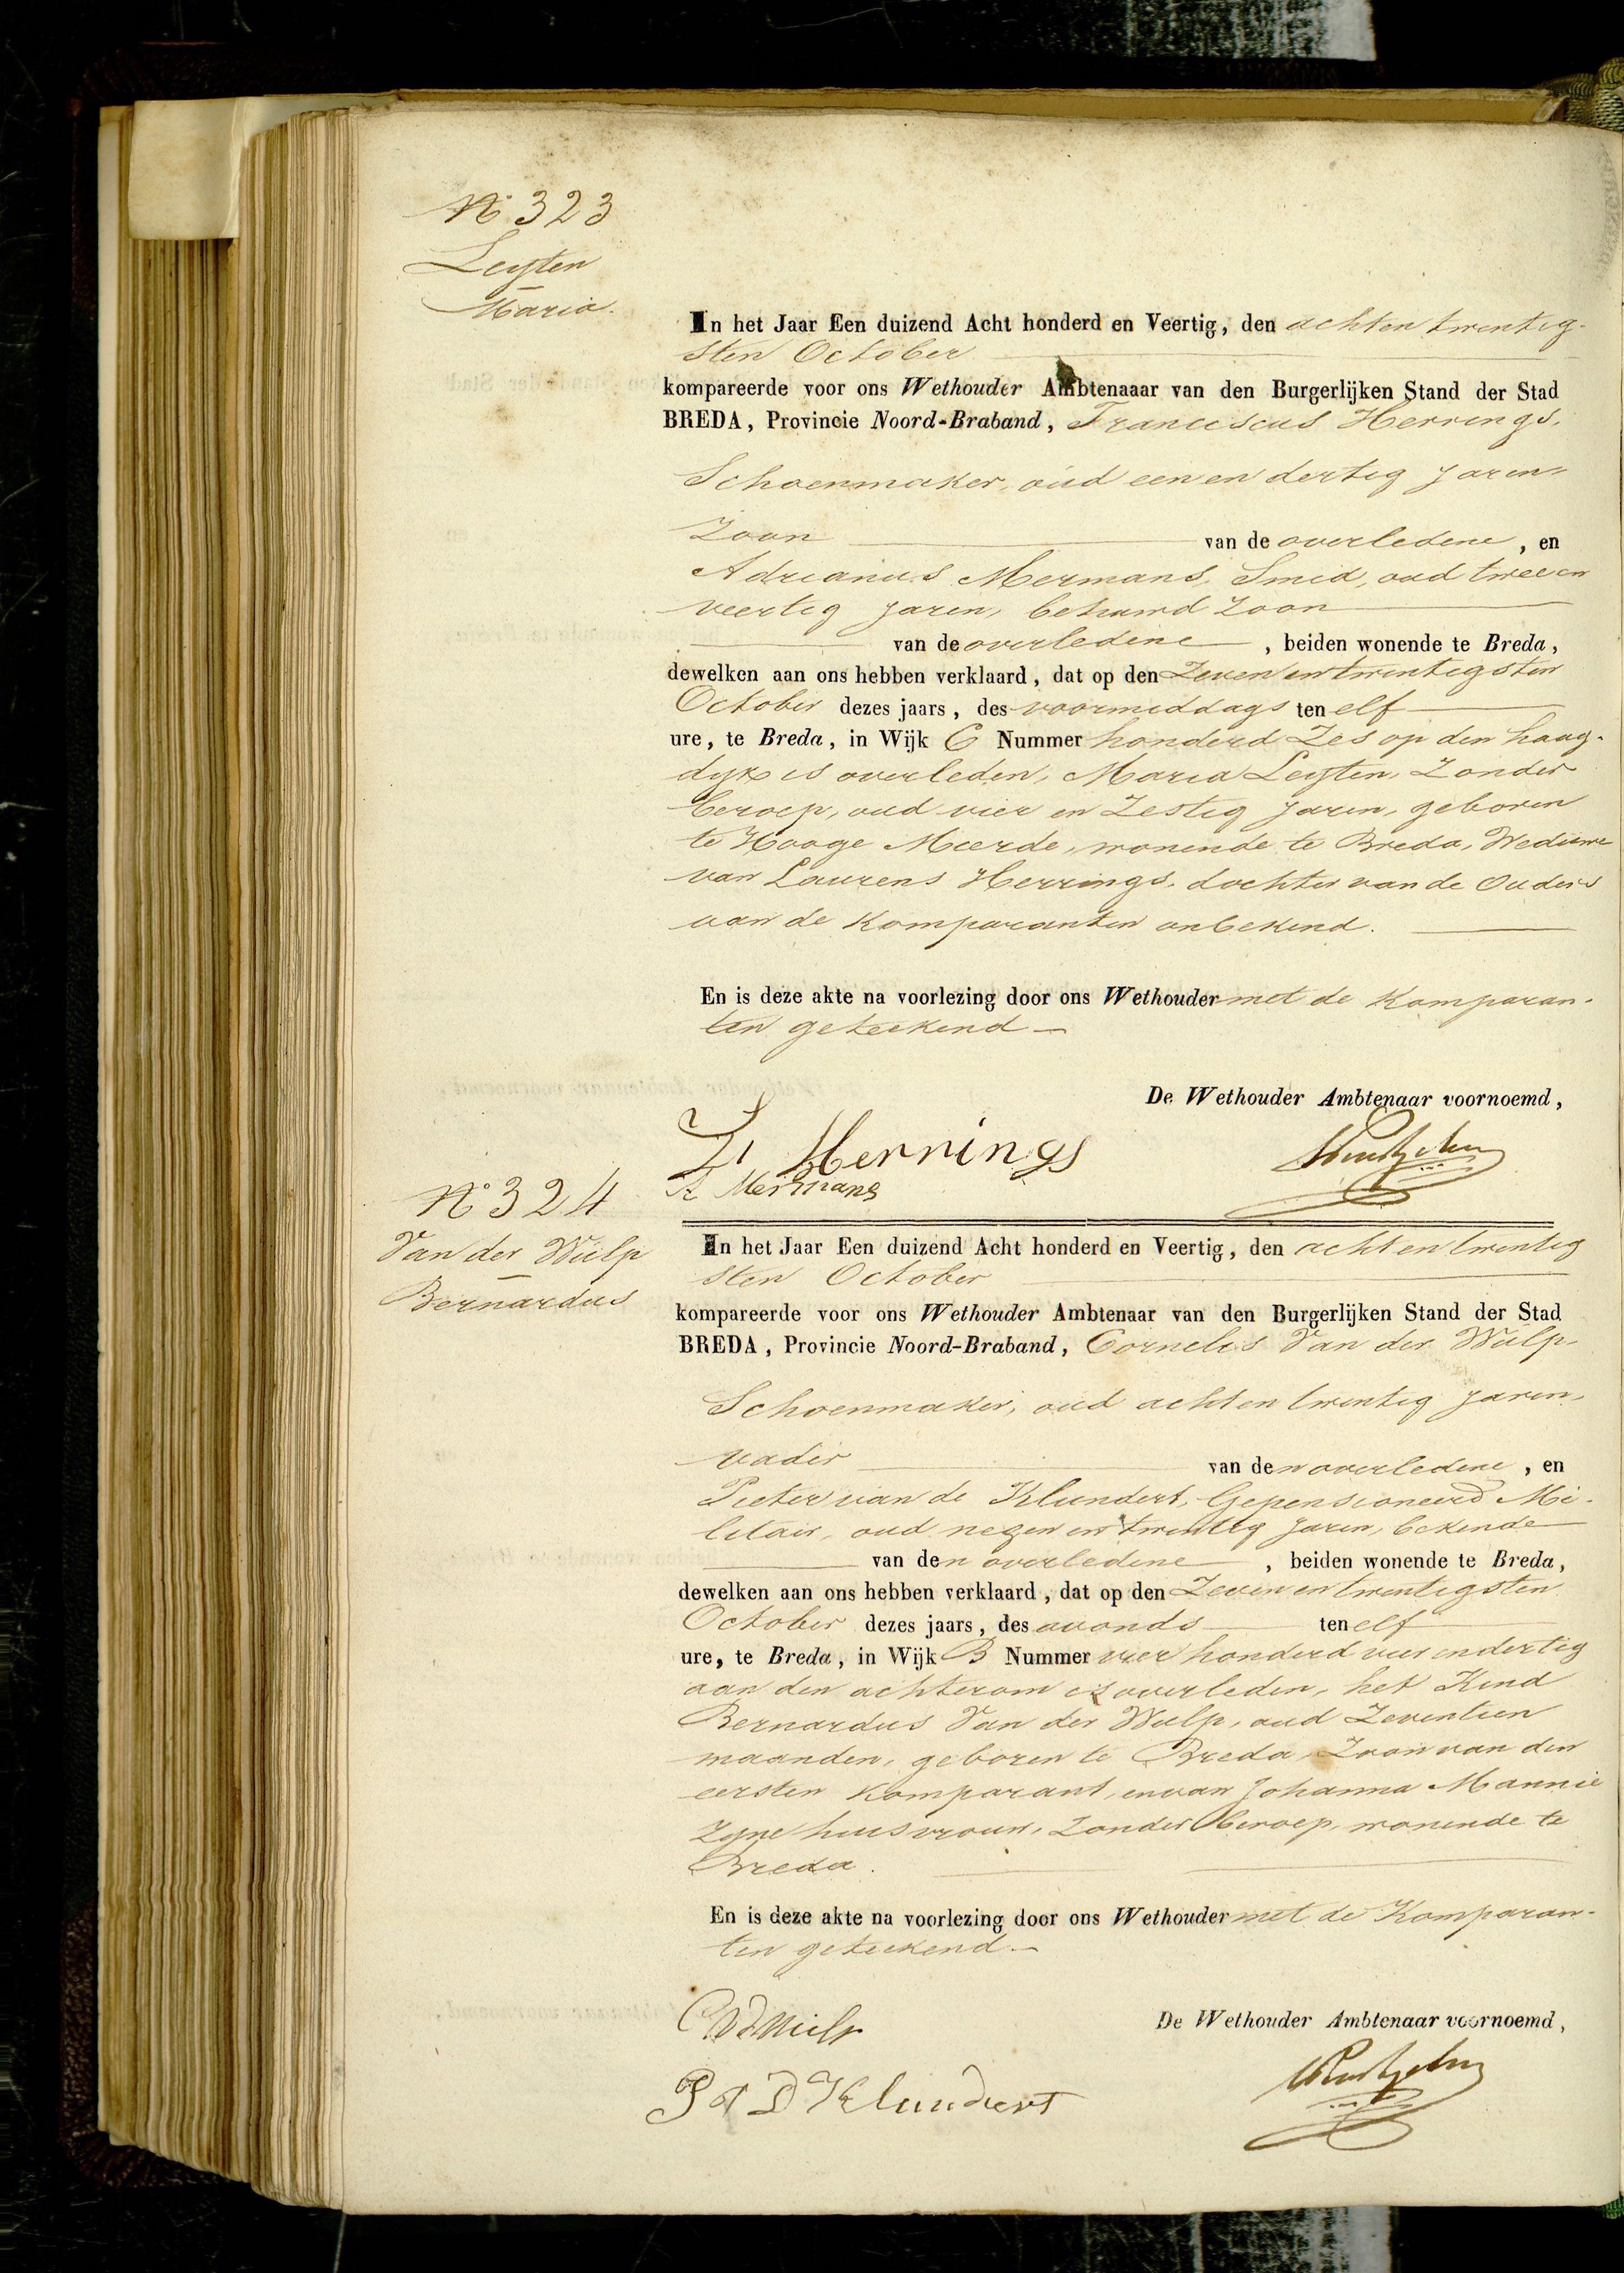 No 323
Leijten
Maria.
In het Jaar Een duizend Acht honderd en Veertig, den acht en twentig-
sten October
kompareerde voor ons Wethouder Ambtenaaar van den Burgerlijken Stand der Stad
BREDA, Provincie Noord-Braband, Franciscus Herrings,
Schoenmaker, oud een en dertig jaren,
Zoon van de overledene, en
Adrianus Mermans, Smid, oud twee en
veertig jaren, behuwd Zoon
van de overledene, beiden wonende te Breda,
dewelken aan ons hebben verklaard, dat op den Zeven en twentigsten
October dezes jaars, des voormiddags ten elf
ure, te Breda, in Wijk C Nummer honderd Zes op den haag-
dijk is overleden, Maria Leijten, Zonder
beroep, oud vier en Zestig jaren, geboren
te Hooge Meerde, wonende te Breda, Weduwe
van Laurens Herrings, dochter van de Ouders
aan de Komparanten onbekend.
En is deze akte na voorlezing door ons Wethouder met de Komparan-
ten geteekend
De Wethouder Ambtenaar voornoemd,
Herrings
A Mermans
No 324
Van der Wulp
Bernardus
In het Jaar Een duizend Acht honderd en Veertig, den acht en twentig
sten October
kompareerde voor ons Wethouder Ambtenaar van den Burgerlijken Stand der Stad
BREDA, Provincie Noord-Braband, Cornelis Van der Wulp,
Schoenmaker, oud acht en twentig jaren,
vader van den overledene, en
Pieter van de Klundert, Gepensioneerd Mi-
litair, oud negen en twentig jaren, bekende
van den overledene, beiden wonende te Breda,
dewelken aan ons hebben verklaard, dat op den Zeven en twentigsten
October dezes jaars, des avonds ten elf
ure, te Breda, in Wijk B Nummer vier honderd vier en dertig
aan den achterom is overleden, het Kind
Bernardus Van der Wulp, oud Zeventien
maanden, geboren te Breda, Zoon van den
eersten Komparant, en van Johanna Mannie
Zijne huisvrouw, Zonder beroep, wonende te
Breda.
En is deze akte na voorlezing door ons Wethouder met de Komparan-
ten geteekend
De Wethouder Ambtenaar voornoemd,
C V D Wulp
P V D Klundert